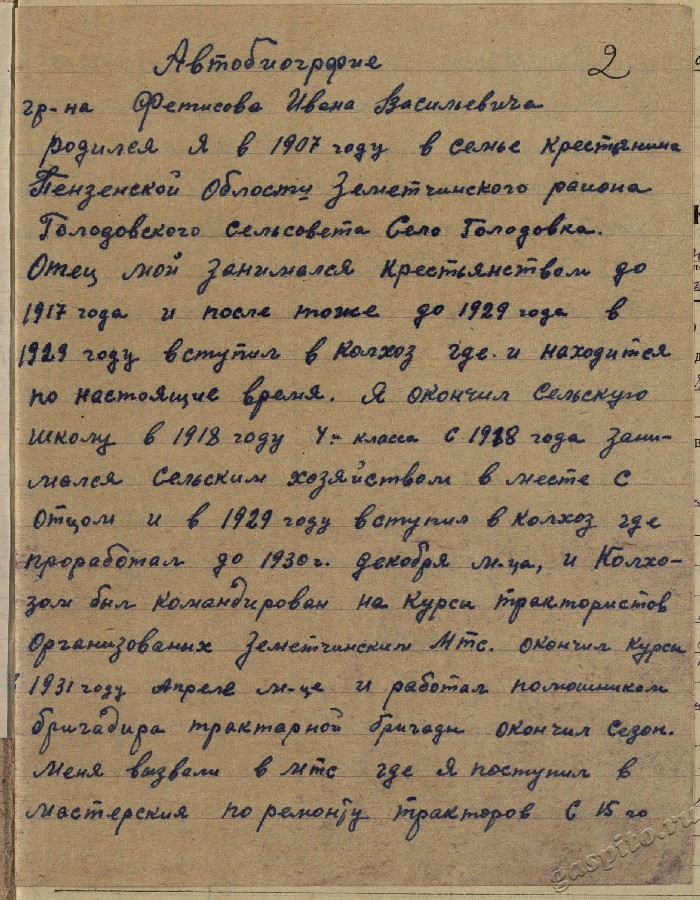 Автобиогрфие
2
гр-на Фетисова Ивана Васильевича
родился я в 1907 году в семье крестянина
Пензенской Области Земетчинского района
Голодовского сельсовета Село Голодовка.
Отец мой занимался крестьянством до
1917 года и после тоже до 1929 года в
1929 году вступил в колхоз где и находится
по настоящие время. Я окончил сельскую
школу в 1918 году 4-х класса с 1918 года зани-
мался сельским хозяйством в месте с
отцом и в 1929 году вступил в колхоз где
проработал до 1930 г. декобря м-ца, и колхо-
зом был командирован на курсы трактористов
организованых Земетчинским МТС. окончил курсы
1931 году Апреле м-це и работал помошником
бригадира трактарной бригады окончил сезон.
меня вызвали в МТС где я поступил в
мастерския по ремонту тракторов с 15 го
gaspito.ru